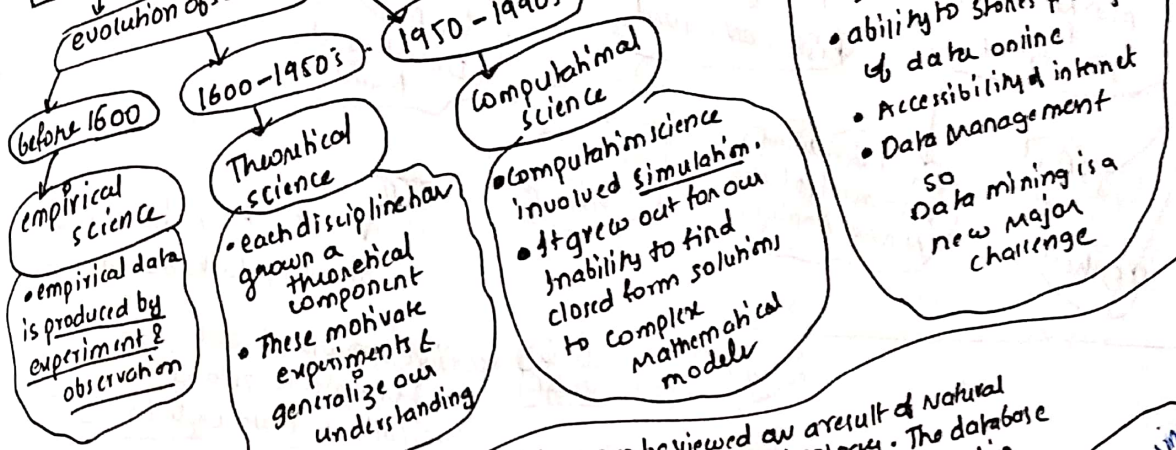 evolution of
before 1600
empirical
science
• empirical data
is produced by
experiment &
observation
1600-1950's
Theoretical
science
• each discipline has
grown a
theoretical
component
• These motivate
experiments &
generalize our
understanding
1950-1990s
Computational
science
• computation science
involved simulation.
• It grew out for our
Inability to find
closed form solutions
to complex
Mathematical
models
• ability to stores
of data online
• Accessibility of internet
• Data Management
so
Data mining is a
new major
challenge
be viewed as a result of Natural
. The database